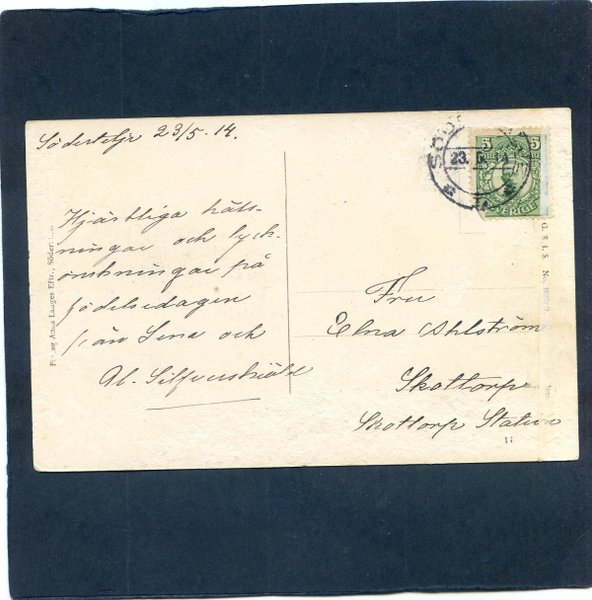 Södertelje 23/5-14.
Hjärtliga häls-
ningar och lyck-
önskningar på
födelsedagen
från Lena och
Al. Silfverskiöld
Fru
Elna Ahlström
Skottorp
Skottorp Station
11
5 5
SVERIGE
23. 5. 14
Förlag Anna Langes Eftr., Söder
G. & I. S. No.